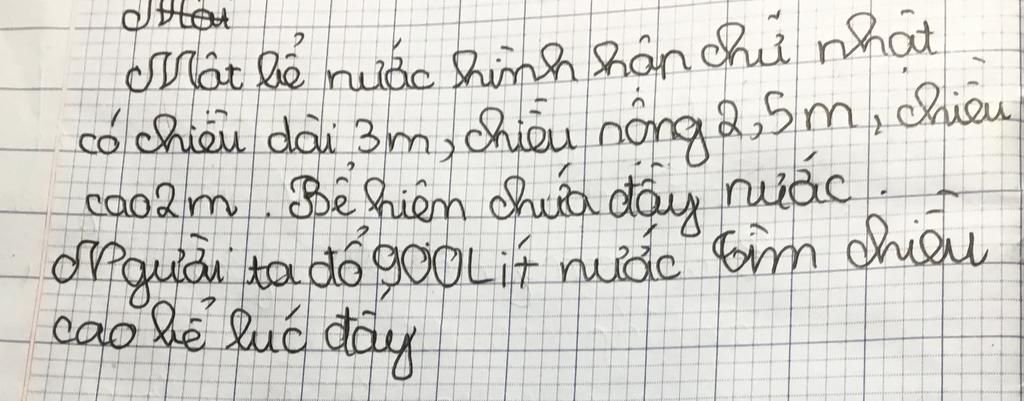 Một bể nước hình hộp chữ nhật
có chiều dài 3m, chiều rộng 2,5m, chiều
cao 2m. Bể hiện chứa đầy nước.
Người ta đổ 900Lít nước tìm chiều
cao bể lúc đầy